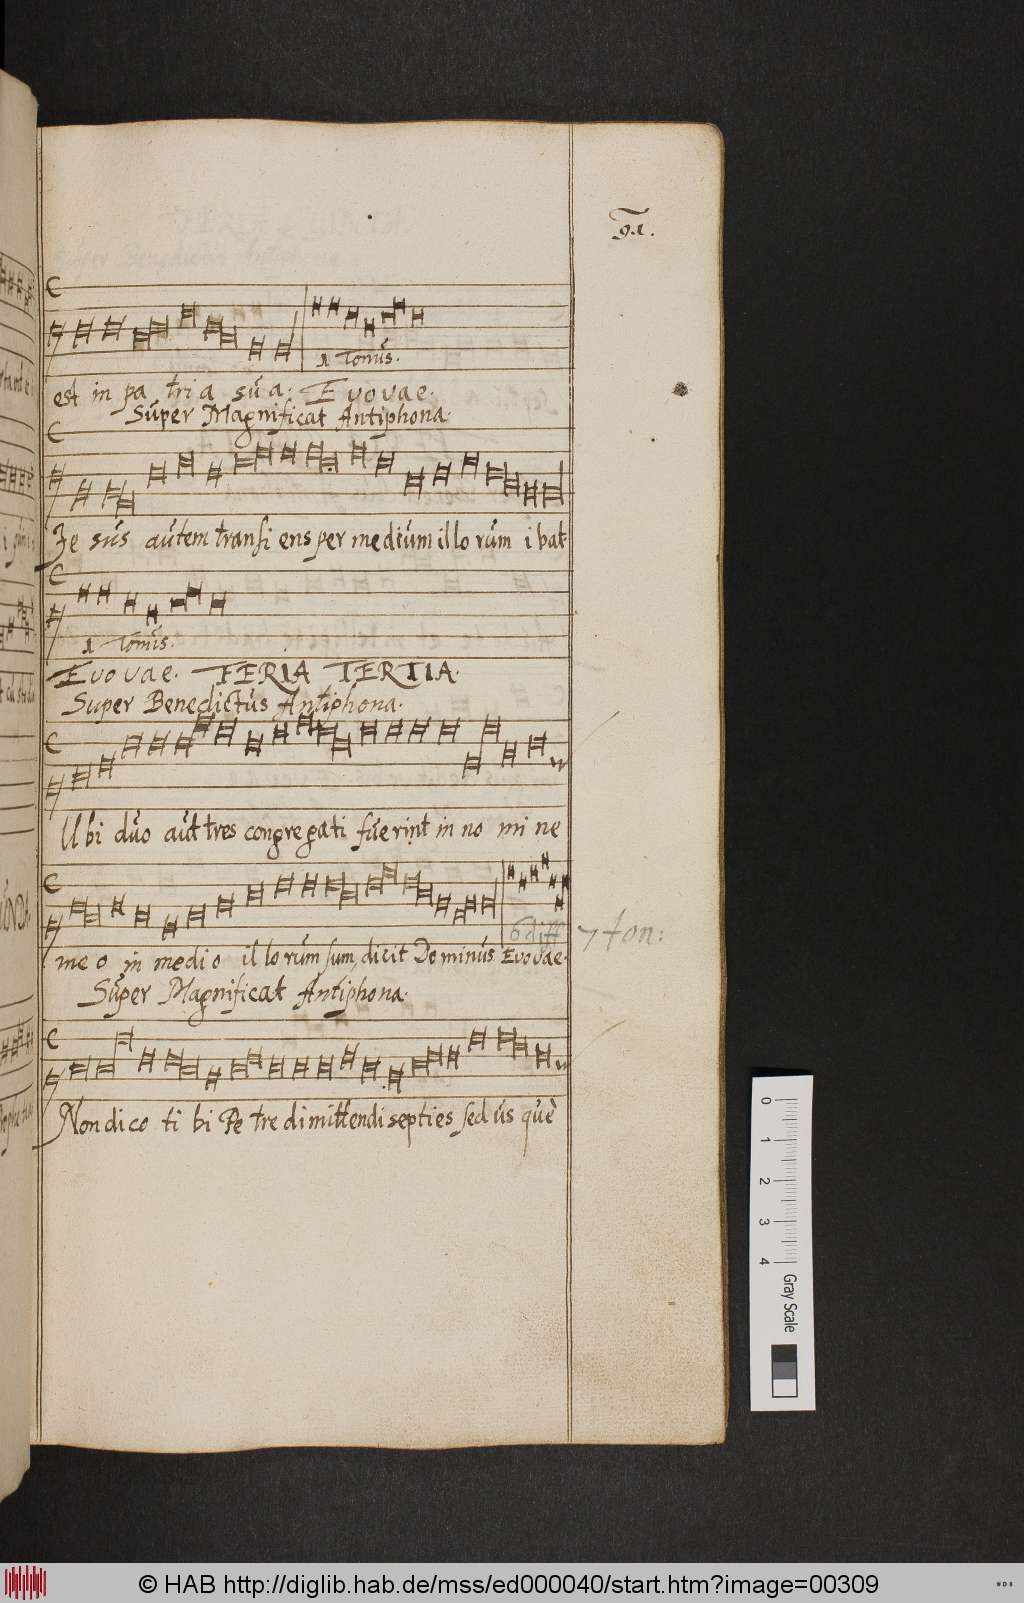 91.
1 Tonus.
est in pa tri a su a: Evovae.
Super Magnificat Antiphona.
Je sus autem transi ens per medium illo rum ibat.
1 Tonus.
Evovae. FERIA TERTIA.
Super Benedictus Antiphona.
Ubi duo aut tres congregati fuerint in no mi ne
6 diff 7 ton:
me o in medio illorum sum, dicit Dominus Evovae.
Super Magnificat Antiphona.
Non dico ti bi Pe tre dimittendi septies sed us què
0 1 2 3 4 Gray Scale
© HAB http://diglib.hab.de/mss/ed000040/start.htm?image=00309